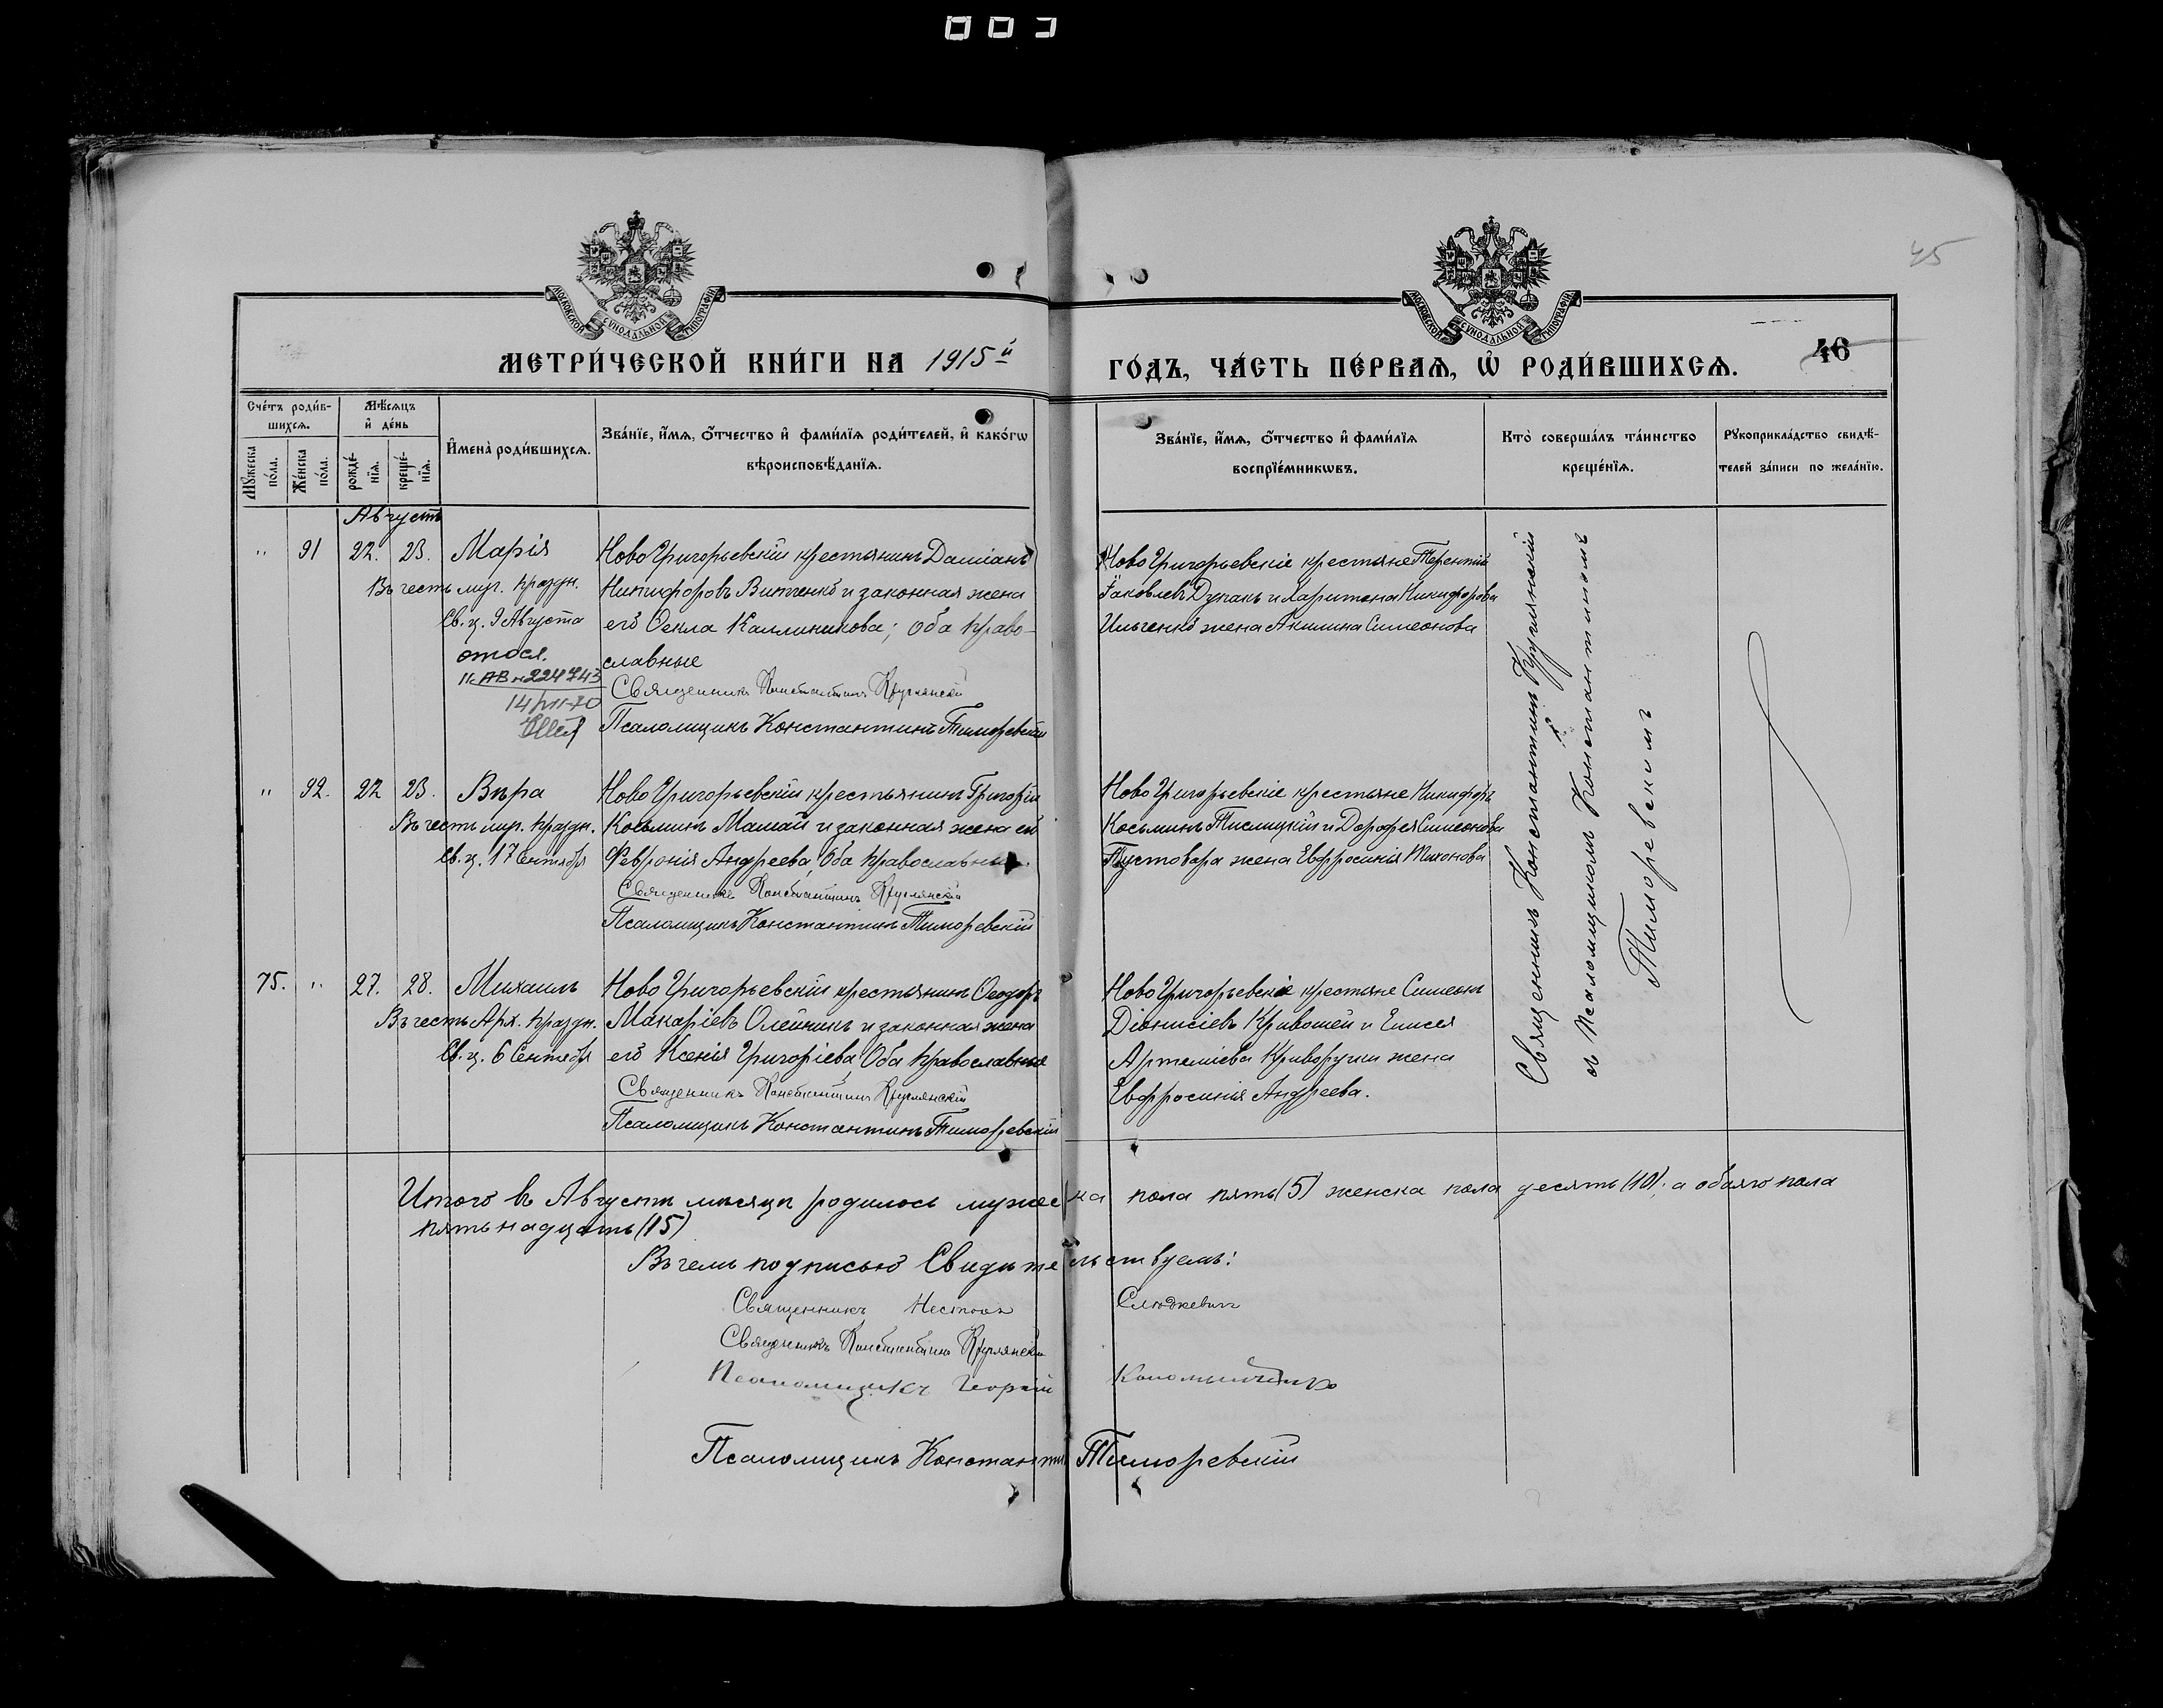 003
МОСКОВСКОЙ СУНОДАЛЬНОЙ ТИПОГРАФІИ
МОСКОВСКОЙ СУНОДАЛЬНОЙ ТИПОГРАФІИ
45
МЕТРИ́ЧЕСКОЙ КНИ́ГИ НА 1915й
ГО́ДЪ, ЧА́СТЬ ПЕ́РВАѦ, Ѡ҆ РОДИ́ВШИХСѦ. 46
Сче́тъ роди́в-
шихсѧ.
Мꙋ́жеска по́ла.
Же́нска по́ла.
Мѣ́сѧцъ
и҆ де́нь
рожде́-
нїѧ.
креще́-
нїѧ.
И҆мена̀ роди́вшихсѧ.
Зва́нїе, и҆́мѧ, ѻ҆́тчество и҆ фами́лїѧ роди́телей, и҆ како́гѡ
вѣроисповѣ́данїѧ.
Зва́нїе, и҆́мѧ, ѻ҆́тчество и҆ фами́лїѧ
воспрїе́мникѡвъ.
Кто̀ соверша́лъ та́инство
креще́нїѧ.
Рꙋкоприкла́дство свидѣ́-
телей за́писи по жела́нїю.
Августъ
" 91 22. 23. Марія
Въ честь муч. праздн.
Св. ц. 9 Августа
II-АВ №224743
Ново Григорьевскій крестьянинъ Даміанъ
Никифоровъ Витченко и законная жена
его Ѳекла Каллиникова; Оба право-
славные
Священникъ Константинъ Круглянскій
Псаломщикъ Константинъ Тиморевскій
Ново Григорьевскіе крестьяне Терентій
Іаковлевъ Дупакъ и Харитона Никифорова
Ильченко жена Акилина Симеонова
" 92. 22 23. Вѣра
Въ честь муч. праздн.
Св. ц. 17 Сентября
Ново Григорьевскій крестьянинъ Григорій
Косьминъ Мамай и законная жена его
Февронія Андреева, Оба православные.
Священникъ Константинъ Круглянскій
Псаломщикъ Константинъ Тиморевскій
Ново Григорьевскіе крестьяне Никифоръ
Косьминъ Тислицкій и Дорофея Симеонова
Пустовара жена Евфросинія Тихонова
75. " 27. 28. Михаилъ
Въ честь Арх. праздн.
Св. ц. 6 Сентября
Ново Григорьевскій крестьянинъ Ѳеодоръ
Макаріевъ Олейникъ и законная жена
его Ксенія Григоріева, Оба православные
Священникъ Константинъ Круглянскій
Псаломщикъ Константинъ Тиморевскій
Ново Григорьевскіе крестьяне Симеонъ
Діонисіевъ Кривошей и Елисея
Артеміева Криворучки жена
Евфросинія Андреева.
Священникъ Константинъ Круглянскій
съ Псаломщикомъ Константиномъ
Тиморевскимъ
Итого въ Августѣ мѣсяцѣ родилось мужеска пола пять (5) женска пола десять (10), а обоего пола
пятьнадцать (15)
Въ чемъ подписью Свидѣтельствуемъ:
Священникъ Несторъ Слюдкевичъ
Священникъ Константинъ Круглянскій
Псаломщикъ Георгій
Псаломщикъ Константинъ Тиморевскій